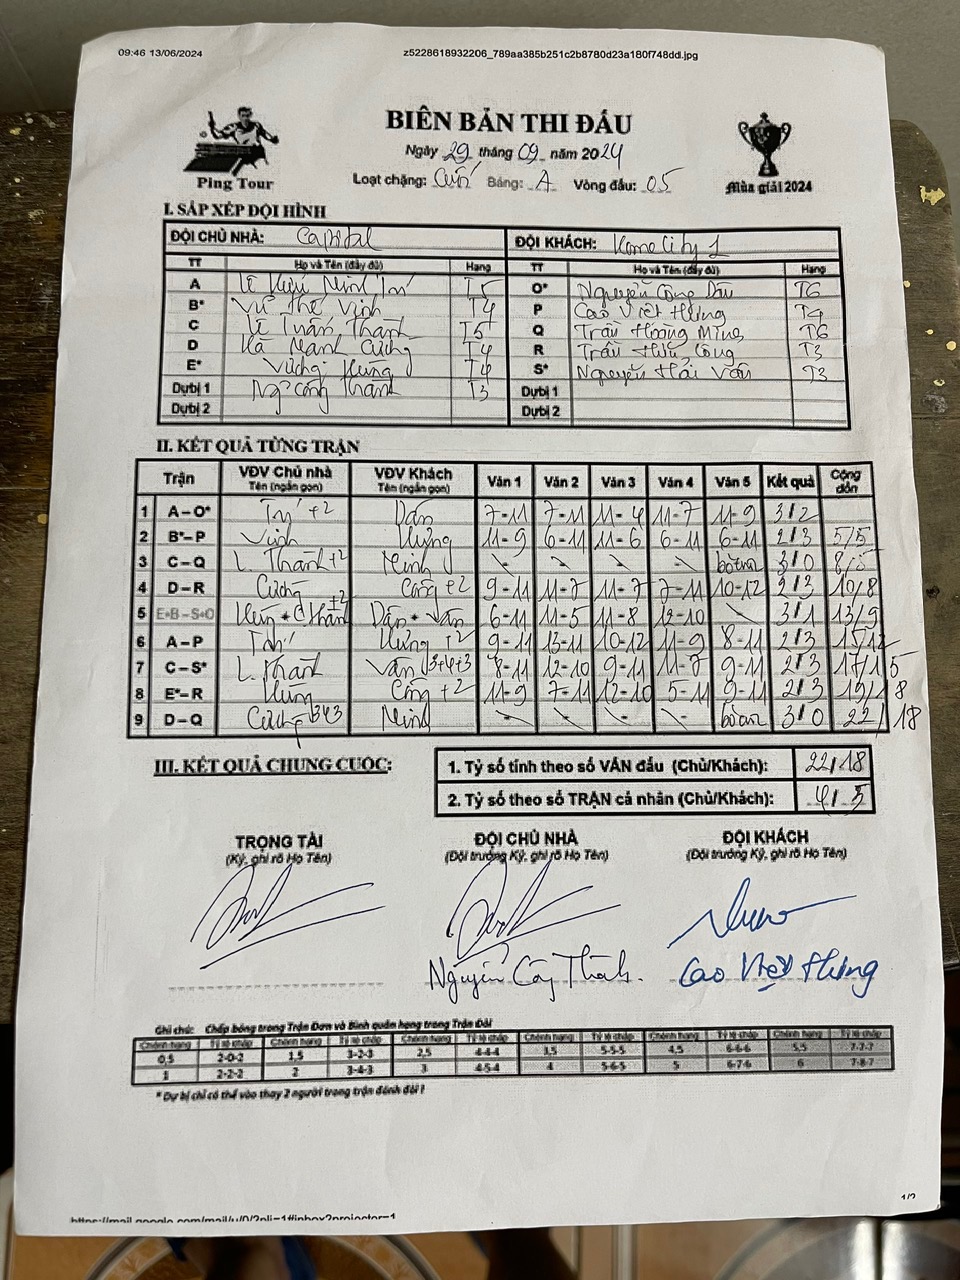 09:46 13/06/2024 z5228618932206_789aa385b251c2b8780d23a180f748dd.jpg
Ping Tour
BIÊN BẢN THI ĐẤU
Ngày 29 tháng 09 năm 2024
Loạt chặng: Cuối Bảng: A Vòng đấu: 05
Mùa giải 2024
I. SẮP XẾP ĐỘI HÌNH
ĐỘI CHỦ NHÀ: Capital ĐỘI KHÁCH: Homecity 1
TT Họ và Tên (đầy đủ) Hạng TT Họ và Tên (đầy đủ) Hạng
A Lê Minh Trí T5 O* Nguyễn Công Dấu T6
B* Vũ Thế Vinh T4 P Cao Việt Hưng T4
C Lê Tuấn Thành T5 Q Trần Hoàng Minh T6
D Hà Mạnh Cường T4 R Trần Hữu Công T3
E* Hùng T4 S* Nguyễn Hải Vân T3
Dự bị 1 Ng Công Thành T3 Dự bị 1
Dự bị 2 Dự bị 2
II. KẾT QUẢ TỪNG TRẬN
Trận VĐV Chủ nhà Tên (ngắn gọn) VĐV Khách Tên (ngắn gọn) Ván 1 Ván 2 Ván 3 Ván 4 Ván 5 Kết quả Cộng dồn
1 A – O* Trí +2 Dấu 7-11 7-11 11-4 11-7 11-9 3/2
2 B* – P Vinh Hưng 11-9 6-11 11-6 6-11 6-11 2/3 5/5
3 C – Q L. Thành +2 Minh bỏ cuộc 3/0 8/5
4 D – R Cường Công +2 9-11 11-7 11-7 7-11 10-12 2/3 10/8
5 E+B – S+O Hùng + C Thành +2 Dấu + Vân 6-11 11-5 11-8 12-10 3/1 13/9
6 A – P Trí Hưng +2 9-11 13-11 10-12 11-9 8-11 2/3 15/12
7 C – S* L. Thành Vân 3+4+3 8-11 12-10 9-11 11-7 9-11 2/3 17/15
8 E* – R Hùng Công +2 11-9 7-11 12-10 5-11 9-11 2/3 19/18
9 D – Q Cường 343 Minh bỏ cuộc 3/0 22/18
III. KẾT QUẢ CHUNG CUỘC:
1. Tỷ số tính theo số VÁN đấu (Chủ/Khách): 22/18
2. Tỷ số theo số TRẬN cá nhân (Chủ/Khách): 4/5
TRỌNG TÀI ĐỘI CHỦ NHÀ ĐỘI KHÁCH
(Ký, ghi rõ Họ Tên) (Đội trưởng Ký, ghi rõ Họ Tên) (Đội trưởng Ký, ghi rõ Họ Tên)
Nguyễn Công Thành. Cao Việt Hưng
Ghi chú: Chấp bóng trong Trận Đơn và Bình quân hạng trong Trận Đôi
Chênh hạng Tỷ lệ chấp Chênh hạng Tỷ lệ chấp Chênh hạng Tỷ lệ chấp Chênh hạng Tỷ lệ chấp Chênh hạng Tỷ lệ chấp Chênh hạng Tỷ lệ chấp
0,5 2-0-2 1,5 3-2-3 2,5 4-4-4 3,5 5-5-5 4,5 6-6-6 5,5 7-7-7
1 2-2-2 2 3-4-3 3 4-5-4 4 5-6-5 5 6-7-6 6 7-8-7
* Dự bị chỉ có thể vào thay 2 người trong trận đánh đôi !
1/2
https://mail.google.com/mail/u/0/?pli=1#inbox?projector=1